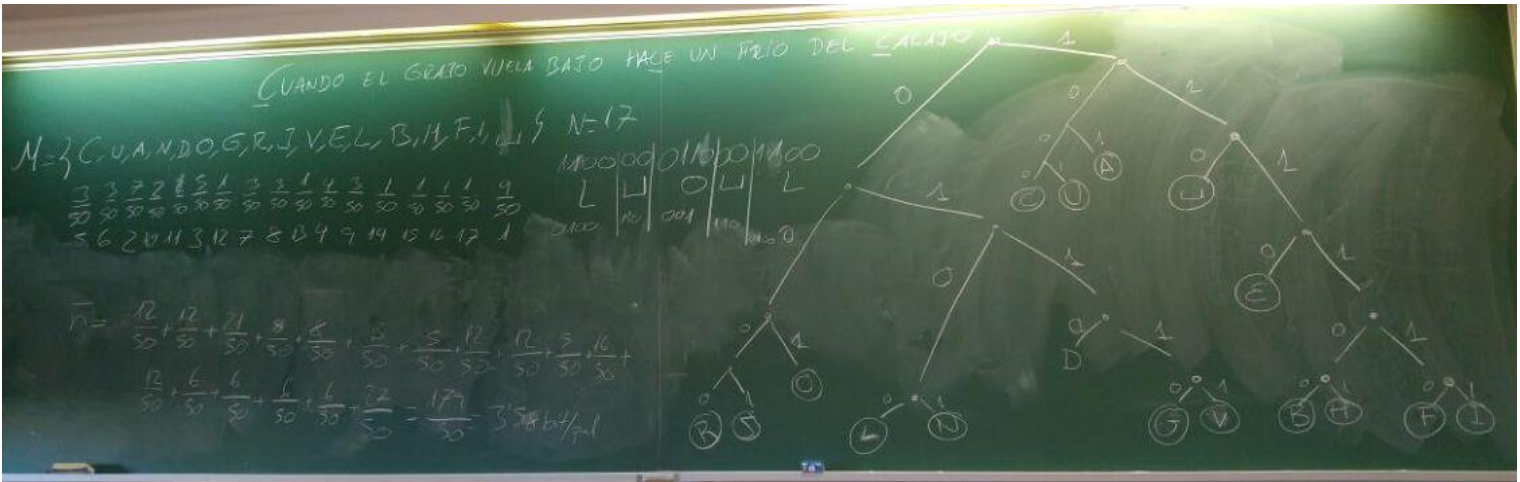 CUANDO EL GRAJO VUELA BAJO HACE UN FRIO DEL CARAJO
M={C,U,A,N,D,O,G,R,J,V,E,L,B,H,F,I,␣} N=17
3/50 3/50 7/50 2/50 5/50 1/50 3/50 3/50 1/50 4/50 3/50 1/50 1/50 1/50 1/50 9/50
5 6 2 10 11 3 12 7 8 13 4 9 14 15 16 17 1
L ␣ O ␣ L
0100 110 001 110 0100
n̄= 12/50 + 12/50 + 21/50 + 8/50 + 8/50 + + 5/50 + 12/50 + 12/50 + 5/50 + 16/50 +
12/50 + 6/50 + 6/50 + 6/50 + 6/50 + 27/50 = 179/50 =
0 1
0 1
0 1
0 1
0 1
C U A ␣
0 1
0 1
E
0 1
0 1
0 1
O
D
0 1
R J
L N
G V
B H
F I